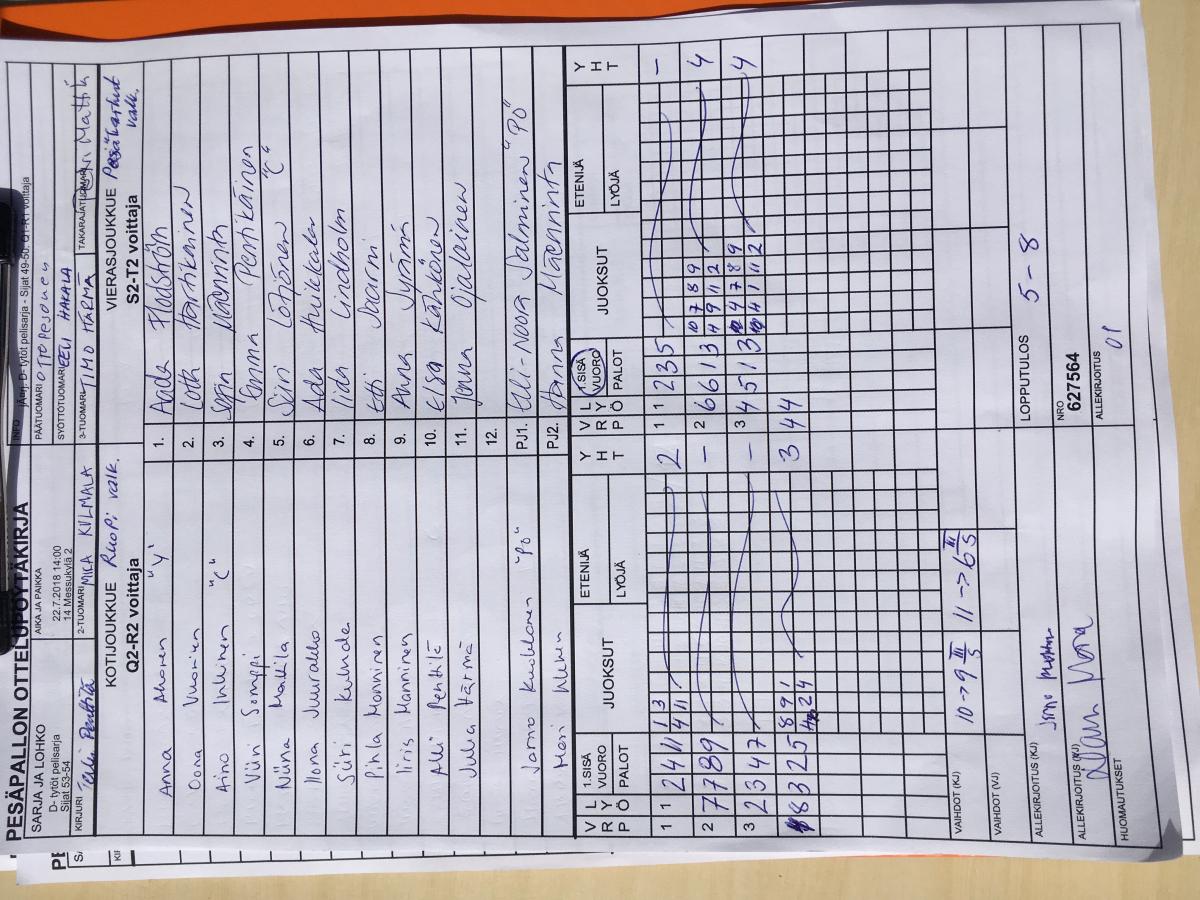 PESÄPALLON OTTELUPÖYTÄKIRJA
SARJA JA LOHKO
D- tytöt pelisarja
Sijat 53-54
AIKA JA PAIKKA
22.7.2018 14:00
14 Messukylä 2
INFO
PÄÄTUOMARI OTTO PELTONEN
SYÖTTÖTUOMARI EELI HAKALA
KIRJURI
2-TUOMARI MIKA KULMALA
3-TUOMARI TIMO HÄRMÄ
TAKARAJATUOMARI
KOTIJOUKKUE RuoPi valk.
Q2-R2 voittaja
VIERASJOUKKUE Pesäkarhut valk.
S2-T2 voittaja
Anna Ahonen "Y" 1. Aada Flodström
Oona Vuorinen 2. Lotta Hartikainen
Aino Inkinen "C" 3. Senja Mäenninta
Viivi Somppi 4. Vanma Pentikäinen
Niina Mattila 5. Siiri Lötjönen "C"
Ilona Juurakko 6. Ada Huikkala
Siiri Kuhnde 7. Iida Lindholm
Pihla Manninen 8. Etti Saarni
Iiris Manninen 9. Anna Nyrmä
Alli Penttilä 10. Elsa Kähkönen
Julia Härmä 11. Jonna Ojaleinen
12.
Jarno Kuikkonen "PO" PJ1. Elli-Noora Salminen "PO"
Mari PJ2. Hanna Mäenninta
VRP LYÖ 1.SISÄ VUORO PALOT JUOKSUT ETENIJÄ LYÖJÄ YHT
VRP LYÖ 1.SISÄ VUORO PALOT JUOKSUT ETENIJÄ LYÖJÄ YHT
1 1 2 4 11 1 3 2
4 11
2 7 7 8 9 –
3 2 3 4 7 –
8 3 2 5 8 9 1 3
2 4
1 1 2 3 5 –
2 6 6 1 3 10 7 8 9 4
4 9 11 2
3 4 5 1 3 4 7 8 9 4
4 1 11 2
4 4
VAIHDOT (KJ) 10->9 III/5 11->6 III/5
VAIHDOT (VJ)
ALLEKIRJOITUS (KJ)
LOPPUTULOS 5-8
ALLEKIRJOITUS (KJ)
NRO
627564
HUOMAUTUKSET
ALLEKIRJOITUS